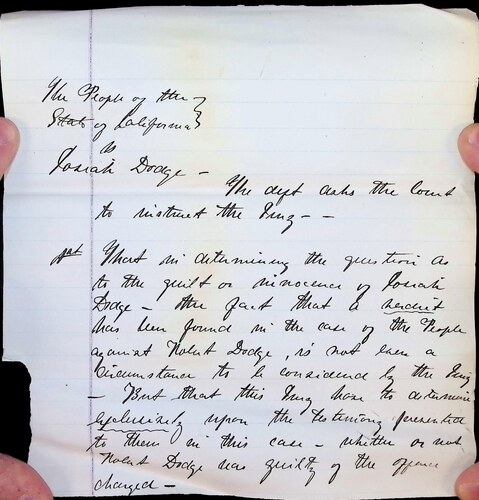 The People of the }
State of California }
vs
Josiah Dodge -
The deft asks the Court
to instruct the Jury - -
1st That in determining the question as
to the guilt or innocence of Josiah
Dodge - the fact that a verdict
has been found in the case of the People
against Robert Dodge, is not even a
Circumstance to be considered by the Jury
- But that this Jury have to determine
exclusively upon the testimony presented
to them in this case - whether or not
Robert Dodge was guilty of the offence
charged -